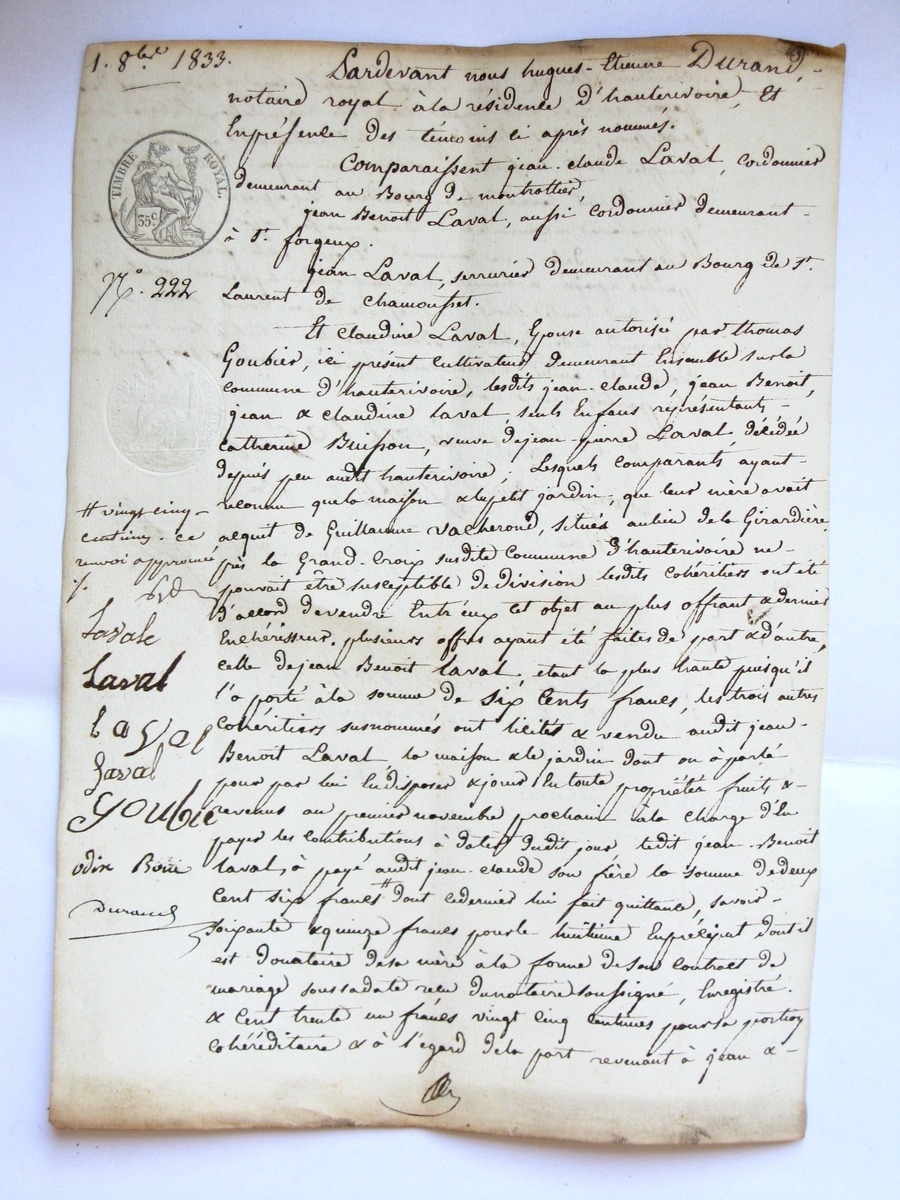 1. 8bre 1833.
Pardevant nous hugues-Etienne Durand,
notaire royal à la résidence d'hauterivoire, Et
En présence des témoins ci après nommés.
Comparaissent jean-claude Laval, cordonnier
demeurant au Bourg de montrottier,
jean Benoit Laval, aussi cordonnier demeurant
à St. forgeux.
jean Laval, serrurier demeurant au Bourg de St.
Laurent de Chamousset.
Et claudine Laval, Epouse autorisée par thomas
Goubier, ici présent cultivateur demeurant Ensemble sur la
commune d'hauterivoire, lesdits jean-claude, jean Benoit,
jean & claudine Laval seuls Enfans représentants
catherine Buisson, veuve de jean-pierre Laval, décédée
depuis peu audit hauterivoire; Lesquels comparants, ayant
reconnu que la maison & le petit jardin, que leur mère avait
acquit de Guillaume Vacheron, situés au lieu de la Girardière
près la Grand-Croix susdite Commune d'hauterivoire ne
pouvait être susceptible de division lesdits cohéritiers ont été
d'accord de vendre Entr'eux cet objet au plus offrant & dernier
Enchérisseur. plusieurs offres ayant été faites de part & d'autre,
celle de jean Benoit Laval, etant la plus haute puisqu'il
l'a porté à la somme de six cents francs, les trois autres
Cohéritiers susnommés ont licités & vendu audit jean-
Benoit Laval la maison & le jardin dont on à parlé
pour par lui En disposer & jouir En toute propriété fruits &
revenus au premier novembre prochain à la charge d'En
payer les contributions à dater dudit jour ledit jean-Benoit
Laval, à payé audit jean-claude son frère la somme de deux
Cent six francs # dont ce dernier lui fait quittance, savoir
soixante & quinze francs pour le huitième En préciput dont il
est donataire de sa mère à la forme de son contract de
mariage sous sa date reçu du notaire soussigné, Enregistré.
& Cent trente un francs vingt cinq centimes pour sa portion
cohéréditaire & à l'égard de la part revenant à jean &
TIMBRE ROYAL.
35c
No. 222
# vingt cinq
centimes. ce
renvoi approuvé
Lavale
Laval
Laval
Laval
Goubie
odin
Durand